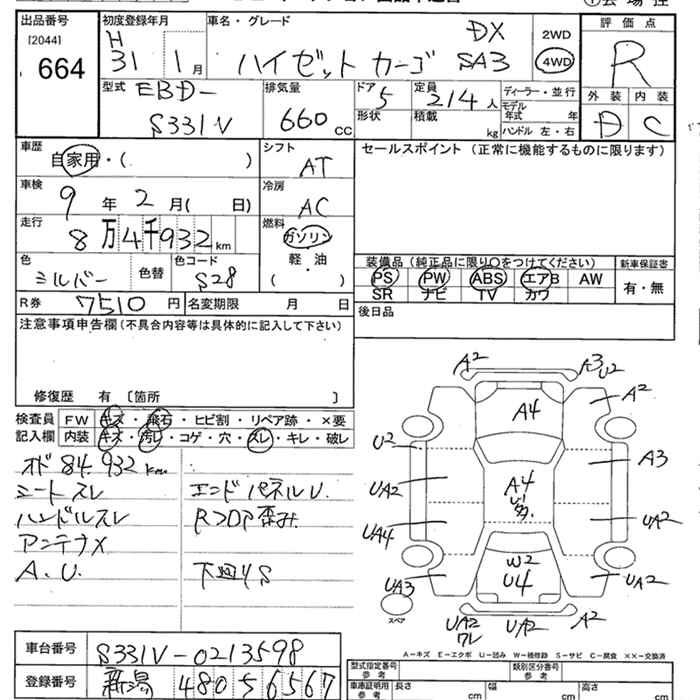 出品番号 初度登録年月 車名・グレード 評価点
[2044] H DX 2WD
664 31年 1月 ハイゼットカーゴ SA3 4WD R
型式 EBD- 排気量 ドア 定員 ディーラー・並行 外装 内装
S331V 660 CC 5 2/4人 モデル年式 年 D C
形状 積載 kg ハンドル 左・右
車歴 自家用・( ) シフト AT セールスポイント(正常に機能するものに限ります)
車検 9年 2月( 日) 冷房 AC
走行 8万4千932km 燃料 ガソリン
軽・油
( )
色 シルバー 色替 色コード S28
装備品(純正品に限り○をつけてください) 新車保証書
PS PW ABS エアB AW 有・無
SR ナビ TV カワ
R券 7510円 名変期限 月 日 後日品
注意事項申告欄(不具合内容等は具体的に記入して下さい)
修復歴 有 〔箇所 〕
検査員 FW キズ・飛石・ヒビ割・リペア跡・×要
記入欄 内装 キズ・汚レ・コゲ・穴・スレ・キレ・破レ
オド 84,932km
シートスレ エンドパネルU.
ハンドルスレ Rフロア歪み.
アンテナX
A.U. 下回りS
A2 A3 U2
A4 A2
U2 A3
UA2 A4
UA4 UA2
W2
UA3 U4 UA2
スペア UA2 ワレ UA2 A2
A-キズ E-エクボ U-凹み W-補修跡 S-サビ C-腐食 ××-交換済
車台番号 S331V-0213598
登録番号 新潟 480 5 6567
型式指定番号 類別区分番号
車庫証明用参考 長さ cm 幅 cm 高さ cm